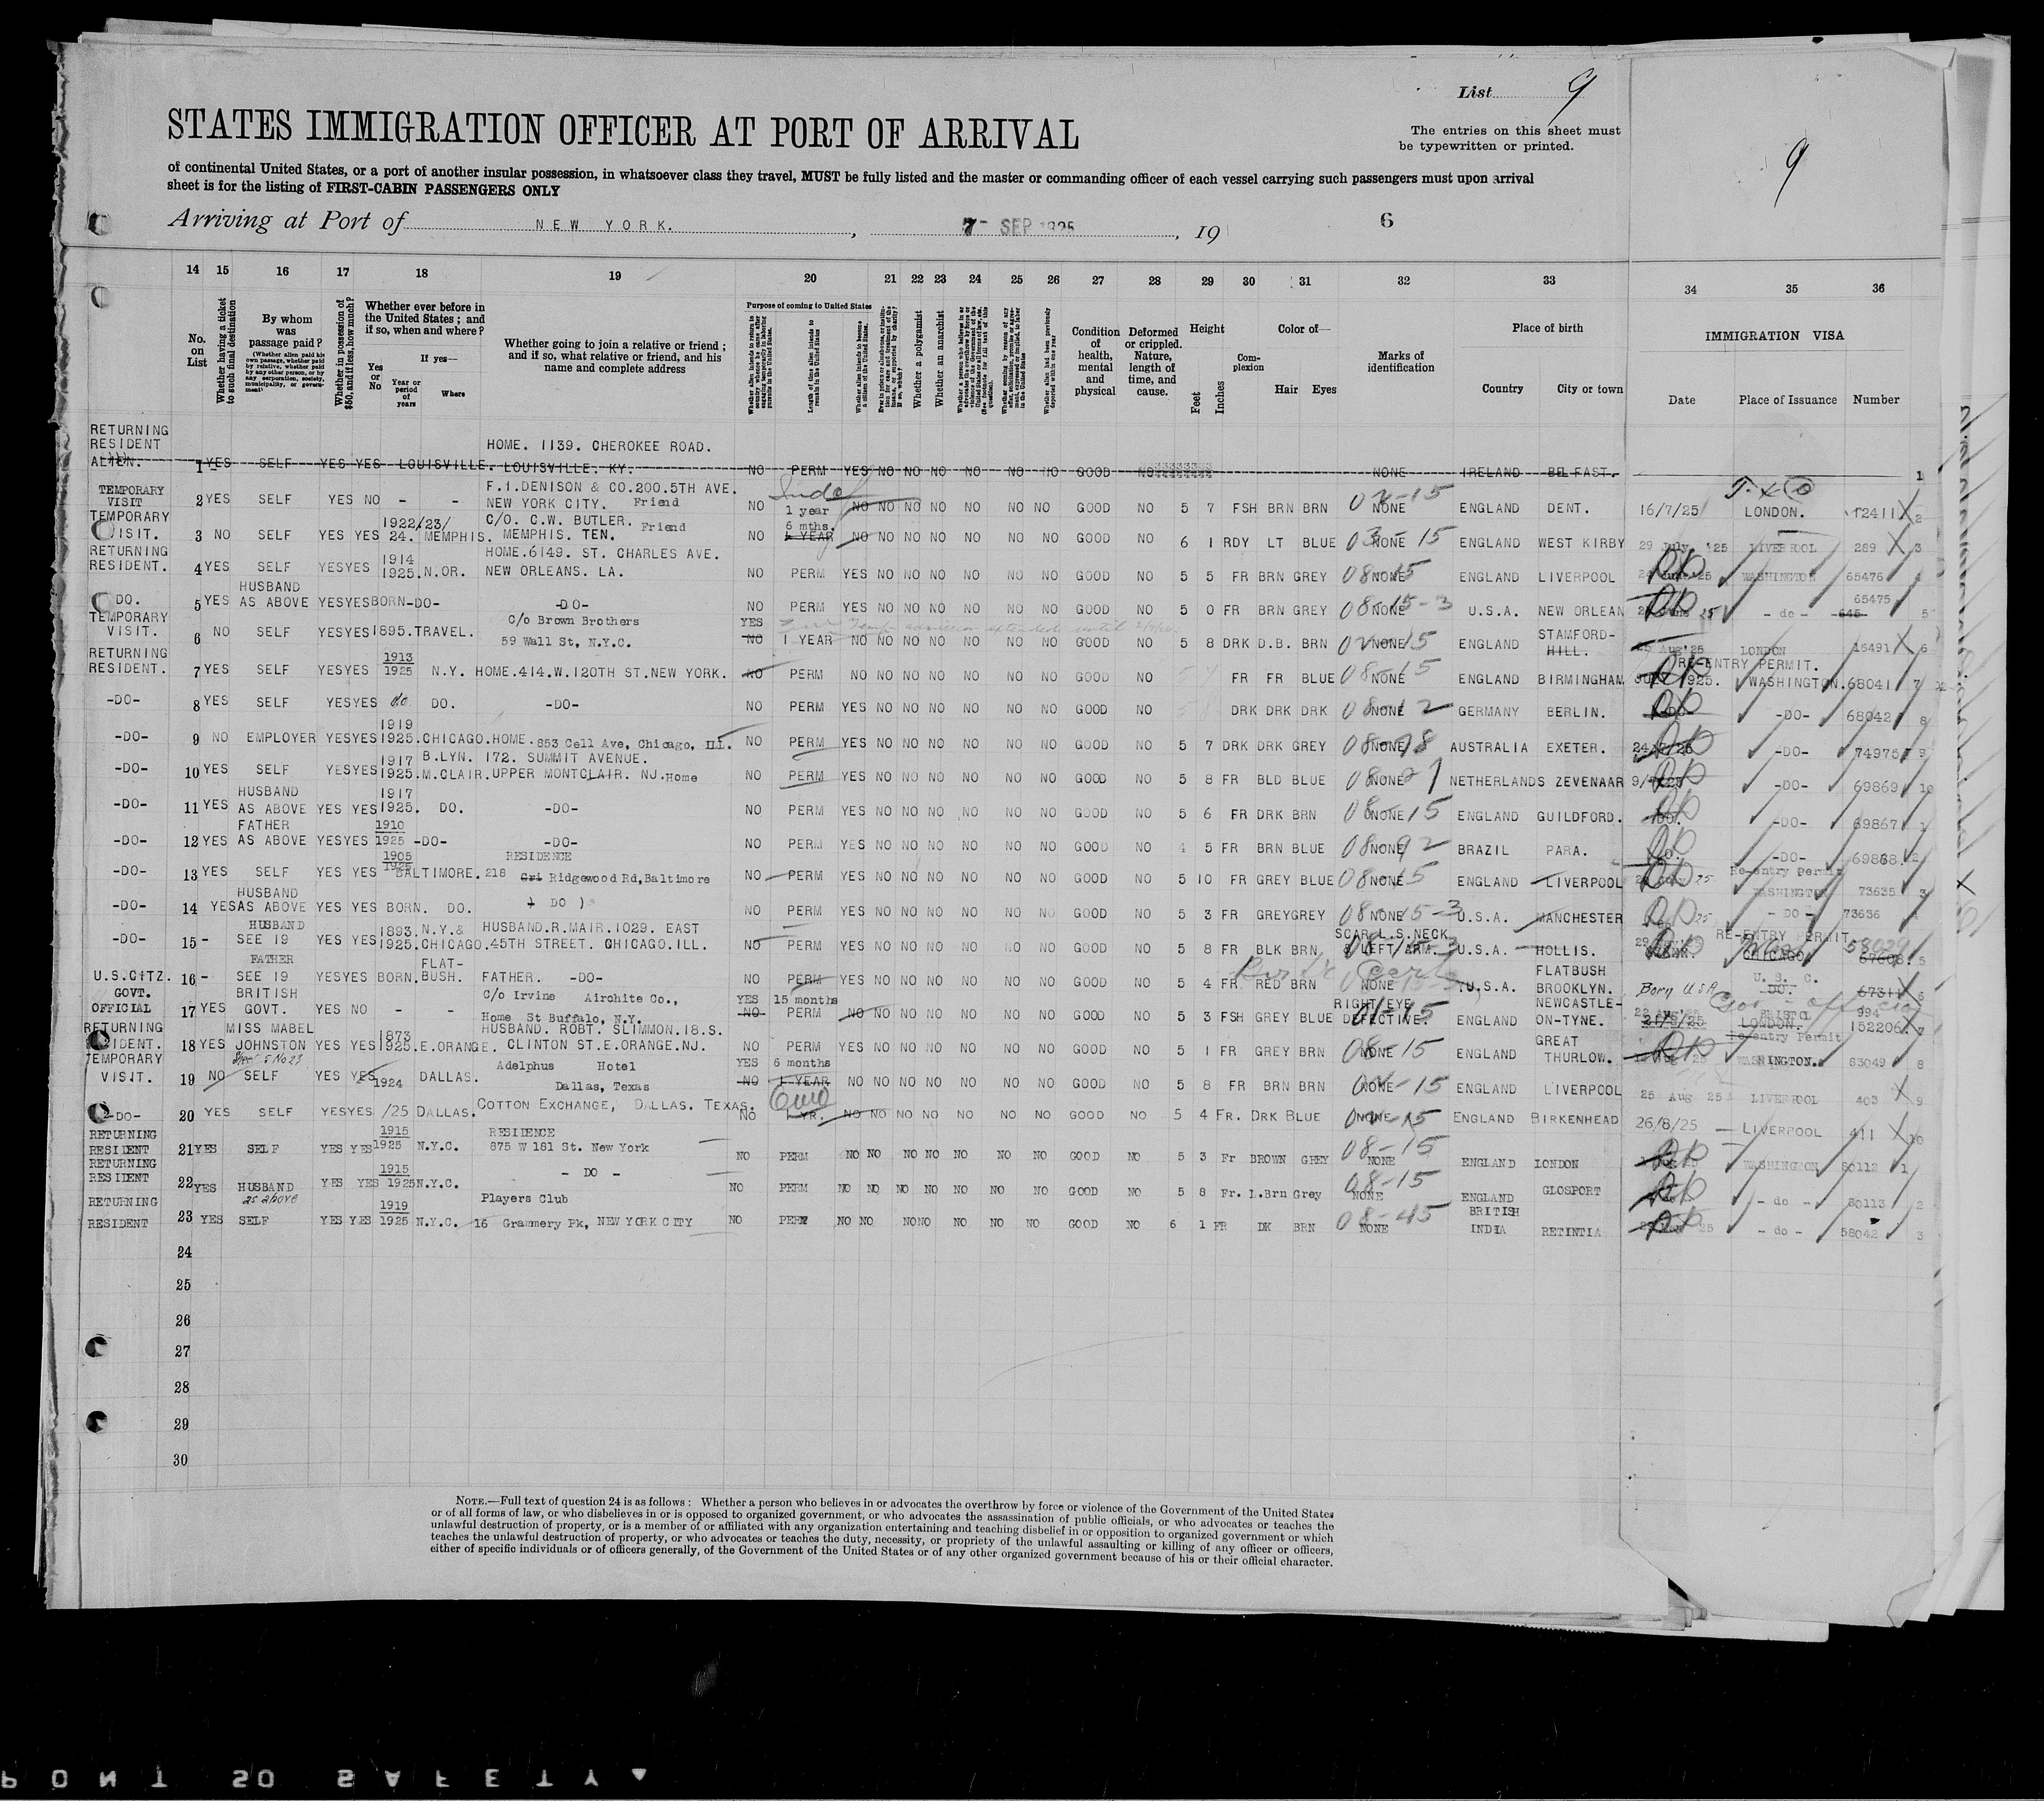 List 9
STATES IMMIGRATION OFFICER AT PORT OF ARRIVAL
The entries on this sheet must
be typewritten or printed.
9
of continental United States, or a port of another insular possession, in whatsoever class they travel, MUST be fully listed and the master or commanding officer of each vessel carrying such passengers must upon arrival
sheet is for the listing of FIRST-CABIN PASSENGERS ONLY
Arriving at Port of NEW YORK. , 7- SEP 1925 , 19 6
14 15 16 17 18 19 20 21 22 23 24 25 26 27 28 29 30 31 32 33 34 35 36
No. on List
Whether having a ticket to such final destination
By whom was passage paid?
(Whether alien paid his own passage, whether paid by relative, whether paid by any other person, or by any corporation, society, municipality, or government)
Whether in possession of $50, and if less, how much?
Whether ever before in the United States; and if so, when and where?
Yes or No
If yes—
Year or period of years
Where
Whether going to join a relative or friend; and if so, what relative or friend, and his name and complete address
Purpose of coming to United States
Length of time alien intends to remain in the United States
Whether a polygamist
Whether an anarchist
Condition of health, mental and physical
Deformed or crippled. Nature, length of time, and cause.
Height
Feet
Inches
Complexion
Color of—
Hair
Eyes
Marks of identification
Place of birth
Country
City or town
IMMIGRATION VISA
Date
Place of Issuance
Number
RETURNING RESIDENT ALIEN. 1 YES SELF YES YES LOUISVILLE. HOME. 1139. CHEROKEE ROAD. LOUISVILLE. KY. NO PERM YES NO NO NO NO NO NO GOOD NO NONE IRELAND BELFAST. 1
TEMPORARY VISIT 2 YES SELF YES NO - - F.I.DENISON & CO.200.5TH AVE. NEW YORK CITY. Friend NO 1 year NO NO NO NO NO NO NO GOOD NO 5 7 FSH BRN BRN NONE ENGLAND DENT. 16/7/25 LONDON. 12411 2
TEMPORARY VISIT. 3 NO SELF YES YES 1922/23/24. MEMPHIS. C/O. C.W. BUTLER. Friend MEMPHIS. TEN. NO 6 mths. 1 YEAR NO NO NO NO NO NO NO GOOD NO 6 1 RDY LT BLUE 03-15 NONE ENGLAND WEST KIRBY 29 July '25 LIVERPOOL 289 3
RETURNING RESIDENT. 4 YES SELF YES YES 1914 1925. N.OR. HOME.6149. ST. CHARLES AVE. NEW ORLEANS. LA. NO PERM YES NO NO NO NO NO NO GOOD NO 5 5 FR BRN GREY 08-15 NONE ENGLAND LIVERPOOL WASHINGTON 65476
DO. 5 YES HUSBAND AS ABOVE YES YES BORN -DO- -DO- NO PERM YES NO NO NO NO NO NO GOOD NO 5 0 FR BRN GREY 08-15-3 NONE U.S.A. NEW ORLEAN - do - 65475 645 5
TEMPORARY VISIT. 6 NO SELF YES YES 1895. TRAVEL. C/o Brown Brothers 59 Wall St, N.Y.C. YES NO 1 YEAR NO NO NO NO NO NO NO GOOD NO 5 8 DRK D.B. BRN NONE ENGLAND STAMFORD-HILL. 25 Aug '25 LONDON 15491 6
RETURNING RESIDENT. 7 YES SELF YES YES 1913 1925 N.Y. HOME.414.W.120TH ST.NEW YORK. NO PERM NO NO NO NO NO NO NO GOOD NO FR FR BLUE 08-15 NONE ENGLAND BIRMINGHAM RE-ENTRY PERMIT. WASHINGTON. 68041 7
-DO- 8 YES SELF YES YES do DO. -DO- NO PERM YES NO NO NO NO NO NO GOOD NO DRK DRK DRK NONE GERMANY BERLIN. -DO- -DO- 68042 8
-DO- 9 NO EMPLOYER YES YES 1919 1925. CHICAGO. HOME. 853 Cell Ave, Chicago, ILL. NO PERM YES NO NO NO NO NO NO GOOD NO 5 7 DRK DRK GREY NONE AUSTRALIA EXETER. -DO- 74975 9
-DO- 10 YES SELF YES YES 1917 1925. B.LYN. M.CLAIR. 172. SUMMIT AVENUE. UPPER MONTCLAIR. NJ. Home NO PERM YES NO NO NO NO NO NO GOOD NO 5 8 FR BLD BLUE NONE NETHERLANDS ZEVENAAR -DO- 69869 10
-DO- 11 YES HUSBAND AS ABOVE YES YES 1917 1925. DO. -DO- NO PERM YES NO NO NO NO NO NO GOOD NO 5 6 FR DRK BRN 08-15 NONE ENGLAND GUILDFORD. -DO- 69867 1
-DO- 12 YES FATHER AS ABOVE YES YES 1910 1925 -DO- -DO- NO PERM YES NO NO NO NO NO NO GOOD NO 4 5 FR BRN BLUE NONE BRAZIL PARA. -DO- 69868. 2
-DO- 13 YES SELF YES YES 1905 1925 BALTIMORE. RESIDENCE 218 Ridgewood Rd, Baltimore NO PERM YES NO NO NO NO NO NO GOOD NO 5 10 FR GREY BLUE 08-15 NONE ENGLAND LIVERPOOL Re-entry Permit WASHINGTON 73635 3
-DO- 14 YES HUSBAND AS ABOVE YES YES BORN. DO. DO NO PERM YES NO NO NO NO NO NO GOOD NO 5 3 FR GREY GREY 08-15-3 NONE U.S.A. MANCHESTER - DO - 73636
-DO- 15 - HUSBAND SEE 19 YES YES 1893. 1925. N.Y.& CHICAGO. HUSBAND.R.MAIR.1029. EAST 45TH STREET. CHICAGO.ILL. NO PERM YES NO NO NO NO NO NO GOOD NO 5 8 FR BLK BRN SCAR L.S.NECK & LEFT ARM. U.S.A. HOLLIS. RE-ENTRY PERMIT CHICAGO 5
U.S.CITZ. 16 - FATHER SEE 19 YES YES BORN. FLAT-BUSH. FATHER. -DO- NO PERM YES NO NO NO NO NO NO GOOD NO 5 4 FR. RED BRN NONE U.S.A. FLATBUSH BROOKLYN. Born USA U. S. C. DO. 67311 6
GOVT. OFFICIAL 17 YES BRITISH GOVT. YES NO - - C/o Irvine Airchite Co., Home St Buffalo, N.Y. YES NO 15 months PERM NO NO NO NO NO NO NO GOOD NO 5 3 FSH GREY BLUE RIGHT EYE DEFECTIVE. ENGLAND NEWCASTLE-ON-TYNE. Gov - official 21/8/25 BRISTOL LONDON. 994 152206 7
RETURNING RESIDENT. 18 YES MISS MABEL JOHNSTON YES YES 1873 1925. E.ORANGE. HUSBAND. ROBT. SLIMMON.18.S. CLINTON ST.E.ORANGE.NJ. NO PERM YES NO NO NO NO NO NO GOOD NO 5 1 FR GREY BRN 08-15 NONE ENGLAND GREAT THURLOW. Re-entry Permit WASHINGTON. 83049 8
TEMPORARY VISIT. 19 NO SELF YES YES 1924 DALLAS. Adelphus Hotel Dallas, Texas YES NO 6 months 1 YEAR NO NO NO NO NO NO NO GOOD NO 5 8 FR BRN BRN NONE ENGLAND LIVERPOOL 25 Aug 25 LIVERPOOL 403 9
-DO- 20 YES SELF YES YES /25 DALLAS. COTTON EXCHANGE, DALLAS. TEXAS. NO 1 YR. NO NO NO NO NO NO NO GOOD NO 5 4 FR. DRK BLUE NONE ENGLAND BIRKENHEAD 26/8/25 LIVERPOOL 411 10
RETURNING RESIDENT 21 YES SELF YES YES 1915 1925 N.Y.C. RESIDENCE 875 W 181 St. New York NO PERM NO NO NO NO NO NO NO GOOD NO 5 3 Fr BROWN GREY 08-15 NONE ENGLAND LONDON WASHINGTON 80112 1
RETURNING RESIDENT 22 YES HUSBAND as above YES YES 1915 1925 N.Y.C. - DO - NO PERM NO NO NO NO NO NO NO GOOD NO 5 8 Fr. L.Brn Grey 08-15 NONE ENGLAND GLOSPORT - do - 80113 2
RETURNING RESIDENT 23 YES SELF YES YES 1919 1925 N.Y.C. Players Club 16 Grammery Pk, NEW YORK CITY NO PERM NO NO NO NO NO NO NO GOOD NO 6 1 FR DK BRN 08-45 NONE BRITISH INDIA RETINTIA - do - 58042 3
24
25
26
27
28
29
30
NOTE.—Full text of question 24 is as follows: Whether a person who believes in or advocates the overthrow by force or violence of the Government of the United States
or of all forms of law, or who disbelieves in or is opposed to organized government, or who advocates the assassination of public officials, or who advocates or teaches the
unlawful destruction of property, or is a member of or affiliated with any organization entertaining and teaching disbelief in or opposition to organized government or which
teaches the unlawful destruction of property, or who advocates or teaches the duty, necessity, or propriety of the unlawful assaulting or killing of any officer or officers,
either of specific individuals or of officers generally, of the Government of the United States or of any other organized government because of his or their official character.
PONT SO SAFETY